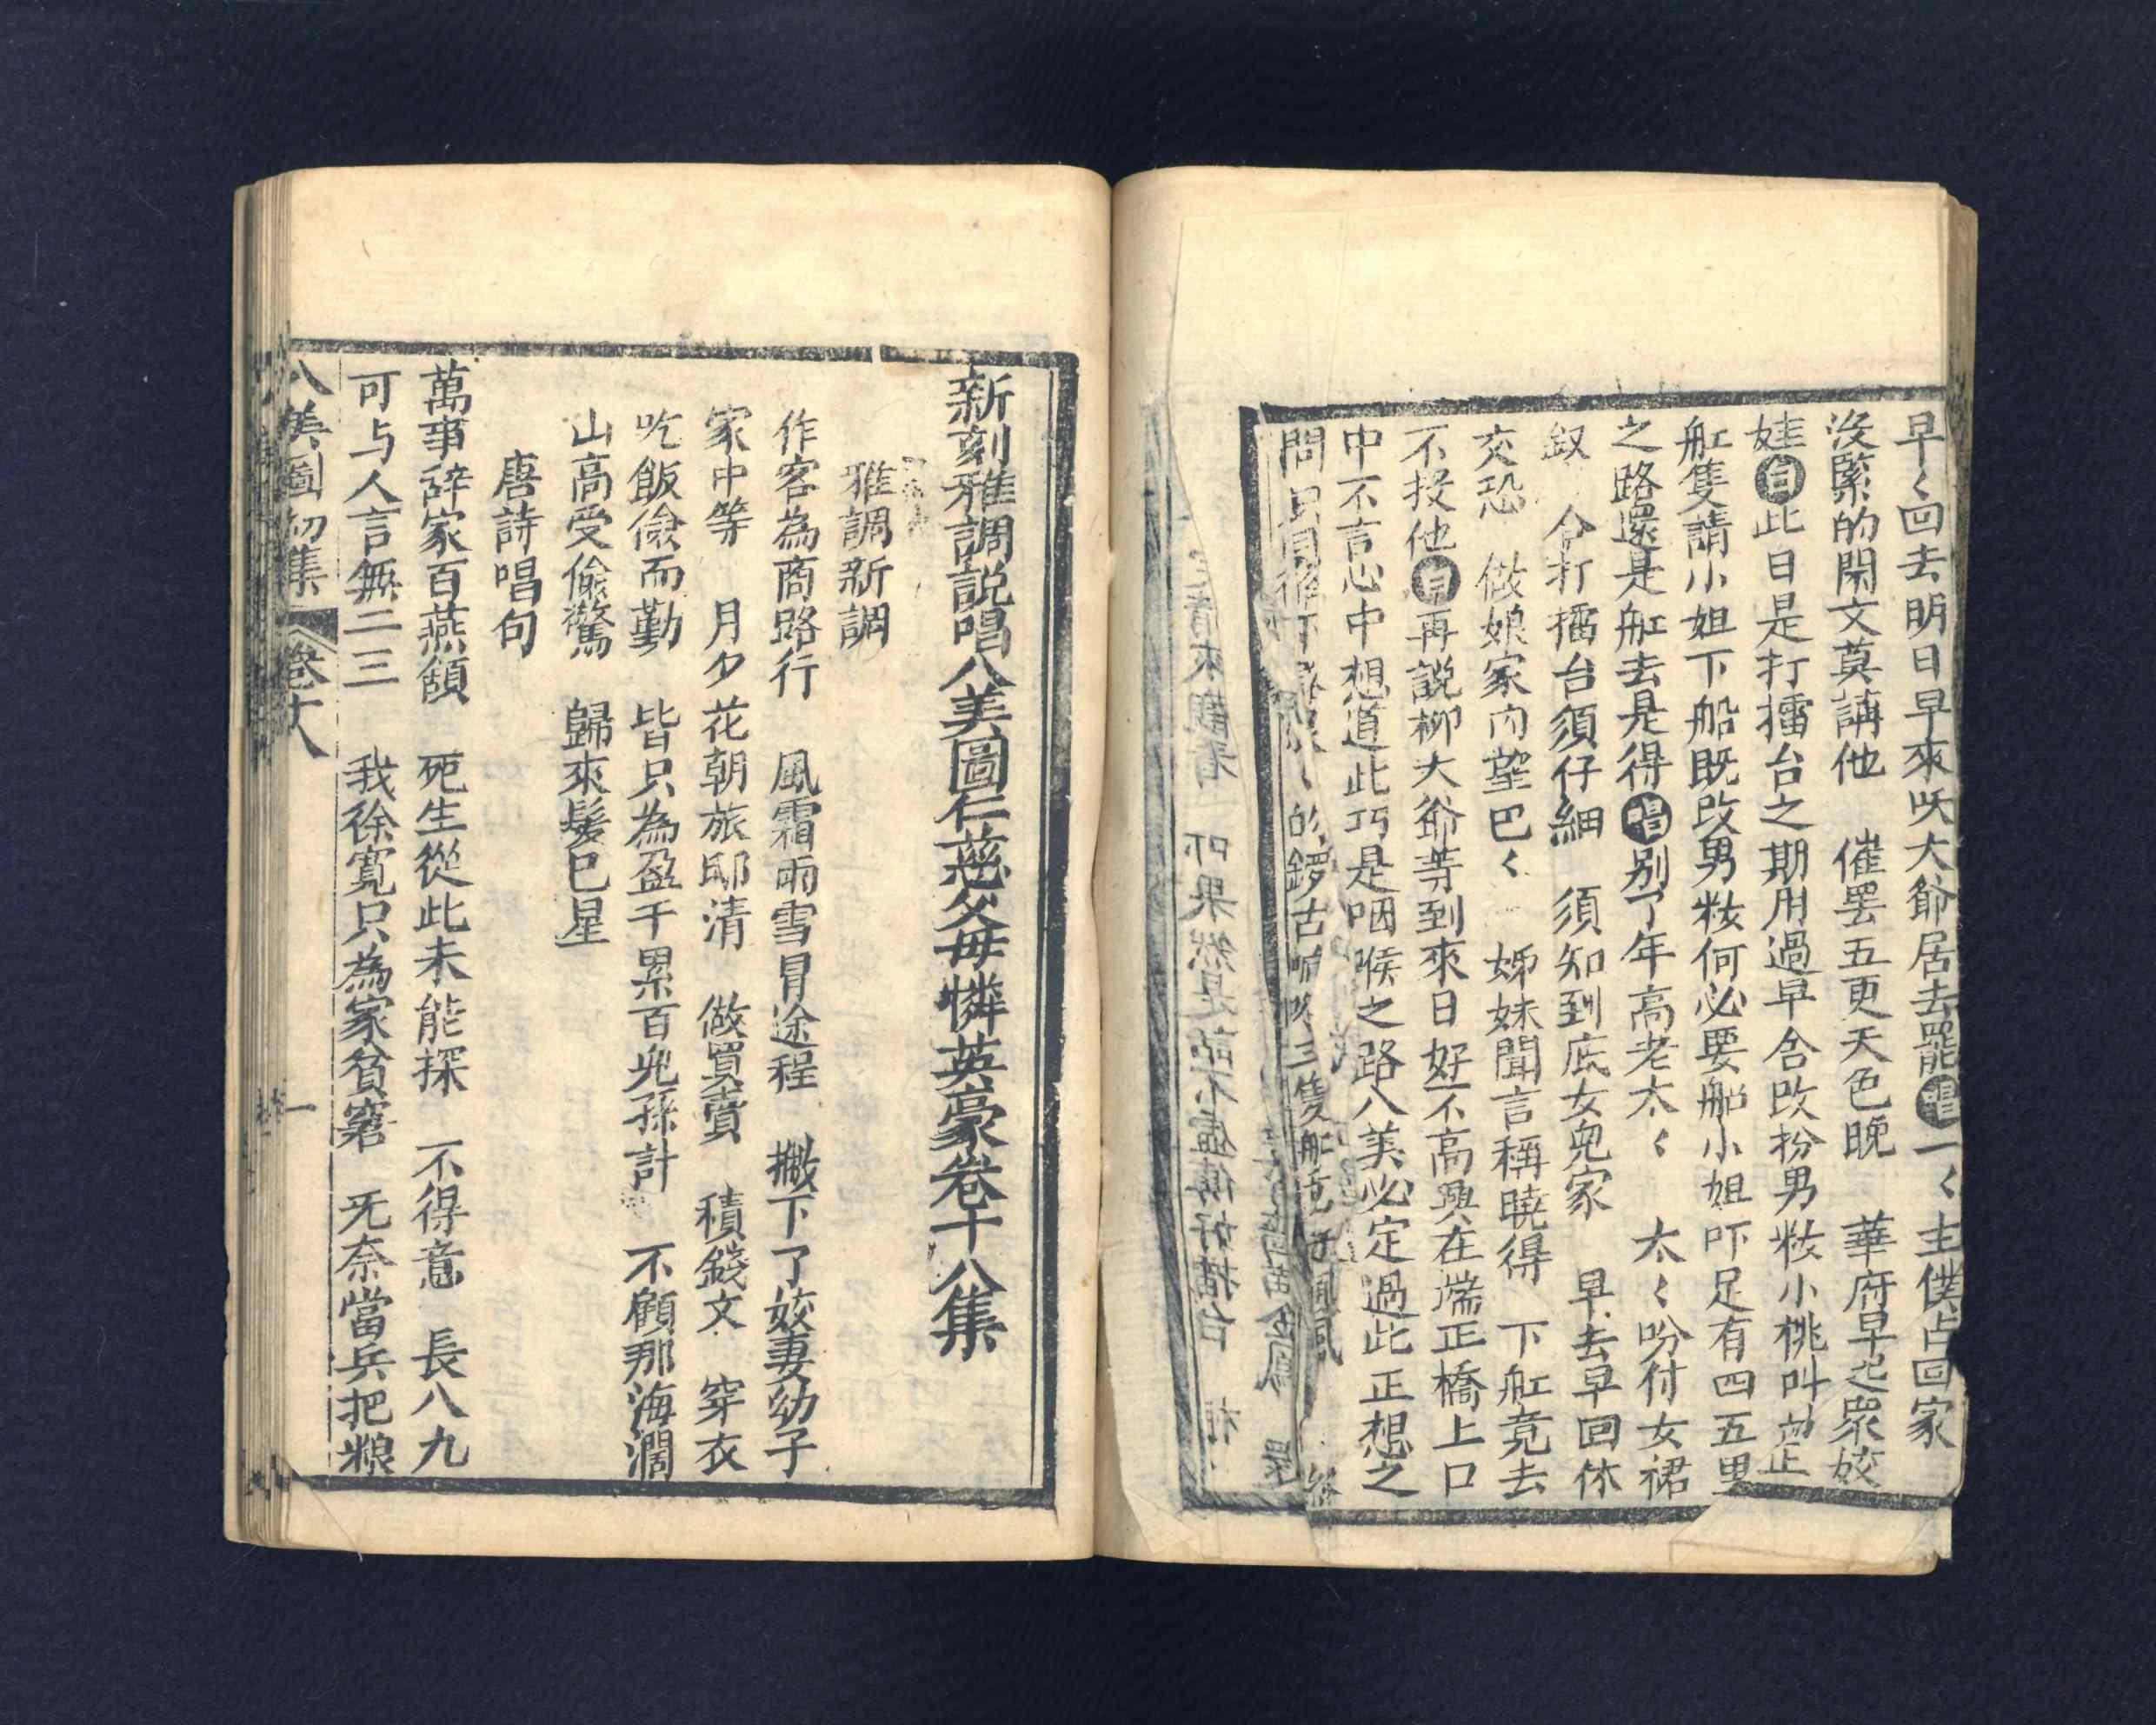 早〻回去明日早來呌大爺居去罷唱一〻主僕占回家
沒緊的閑文莫講他　催罢五更天色晚　華府早起眾姣
娃白此日是打擂台之期用過早仒改扮男粧小桃叫
舡隻請小姐下船既改男粧何必要船小姐吓足有四五里
之路還是舡去是得唱别了年高老太〻　太〻吩付女裙
釵　仒打擂台須仔細　須知到底女兒家　早去早回休
交恐　做娘家內望巴〻　姊妹聞言稱曉得　下舡竟去
不投他白再説柳大爺等到來日好不高興在端正橋上口
中不言心中想道此巧是咽喉之路八美必定過此正想之
問只見
的鑼古
三隻舡
新刻雅調説唱八美圖仁慈父毋憐英豪卷十八集
雅調新調
作客為商路行　風霜雨雪冒途程　撇下了姣妻幼子
家中等　月夕花朝旅邸清　做買賣　積錢文　穿衣
吃飯儉而勤　皆只為盈千累百兒孫計　不顧那海濶
山高受偷驚　歸來髮已星
唐詩唱句
萬事辞家百燕頷　死生從此未能探　不得意　長八九
可与人言無二三　我徐寬只為家貧窘　旡奈當兵把粮
八美圖初集　卷十八　一